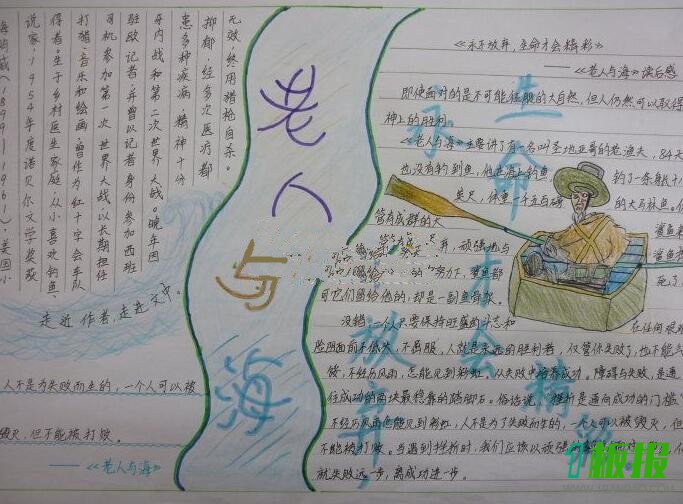 海明威(1899-1961)、美国小
说家。1954年度诺贝尔文学奖获
得者、生于乡村医生家庭,从小喜欢钓鱼、
打猎、音乐和绘画,曾作为红十字会车队
司机参加第一次世界大战以长期担任
驻欧记者,并曾以记者身份参加西班
牙内战和第二次世界大战。晚年因
患多种疾病,精神十分
抑郁,经多次医疗都
无效,终用猎枪自杀。
走近作者,走进文本。
人不是为失败而生的,一个人可以被
毁灭,但不能被打败。
——《老人与海》
老人与海
《永不放弃,生命才会精彩》
——《老人与海》读后感
即使面对的是不可能征服的大自然,但人仍然可以取得
神上的胜利
《老人与海》主要讲了有一名叫圣地亚哥的老渔夫,84天
也没有钓到鱼,他在海上钓鱼 钓了一条躯十
英尺,体重一千五百磅 的大马林鱼。
管有成群的大 鲨鱼
并,顽强地与
的努力下,鲨鱼都 死了
可它们留给他的,却是一副鱼骨架。
没错,一人只要保持旺盛的斗志和 在任何艰
险阻面前不低头,不屈服,人就是永远的胜利者,仅管你失败了,也不能气
馁,不经历风雨,怎能见到彩虹,从失败中培养成功。障碍与失败,是通
往成功的两块最稳靠的踏脚石。俗话说,挫折是通向成功的门槛
不经历风雨怎能见到彩虹,人不是为了失败而生的,一个人可以被毁灭,但
不能被打败。当遇到挫折时,我们应该以顽强 面对
就失败远一步,离成功进一步。
永不放弃 生命才会精彩
板报